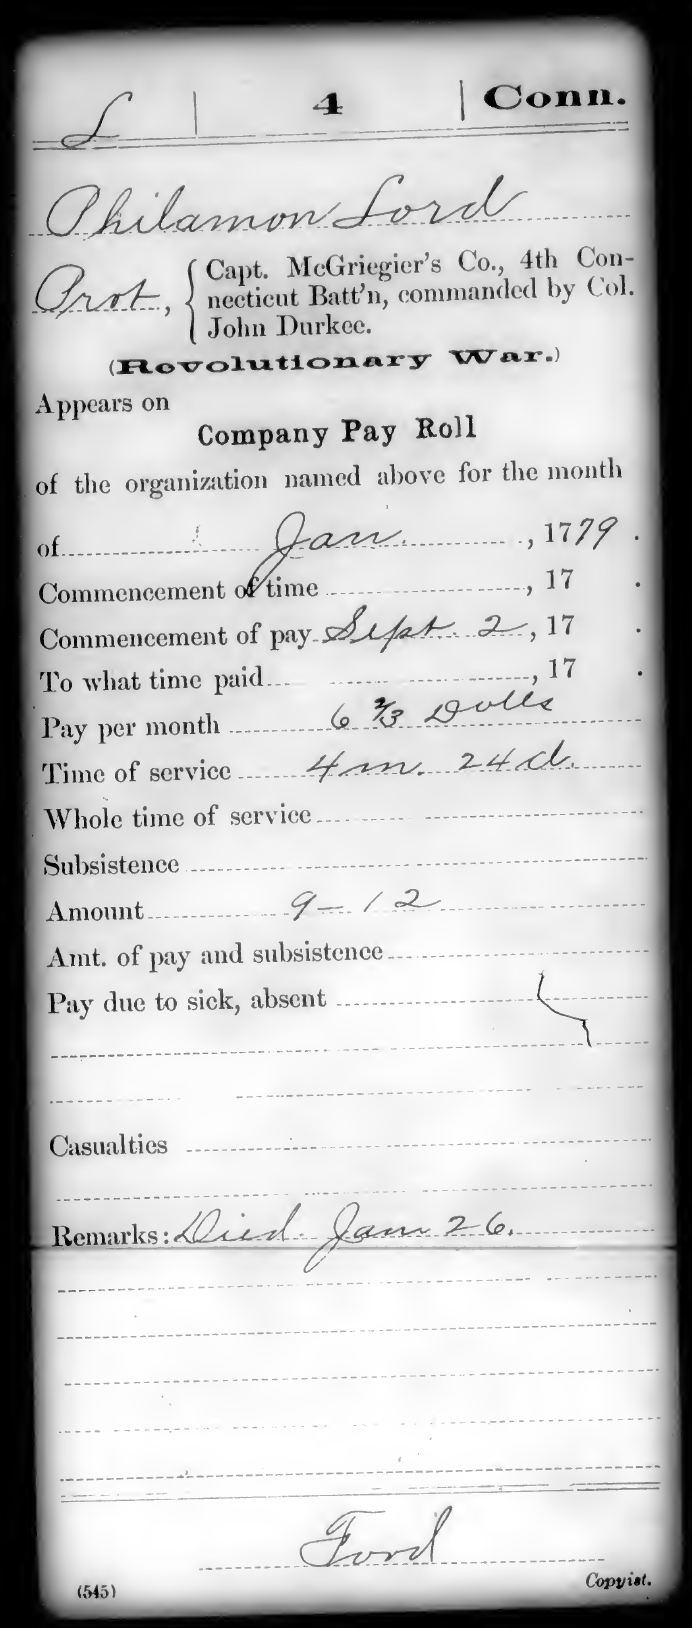 L | 4 | Conn.
Philamon Lord
Prvt, { Capt. McGriegier's Co., 4th Con-
necticut Batt'n, commanded by Col.
John Durkee.
(Revolutionary War.)
Appears on
Company Pay Roll
of the organization named above for the month
of Jan. , 1779 .
Commencement of time , 17 .
Commencement of pay Sept. 2 , 17 .
To what time paid , 17 .
Pay per month 6 2/3 Dolls
Time of service 4 m. 24 d.
Whole time of service
Subsistence
Amount 9-12
Amt. of pay and subsistence
Pay due to sick, absent
Casualties
Remarks: Died Jan 26.
Ford
(545) Copyist.